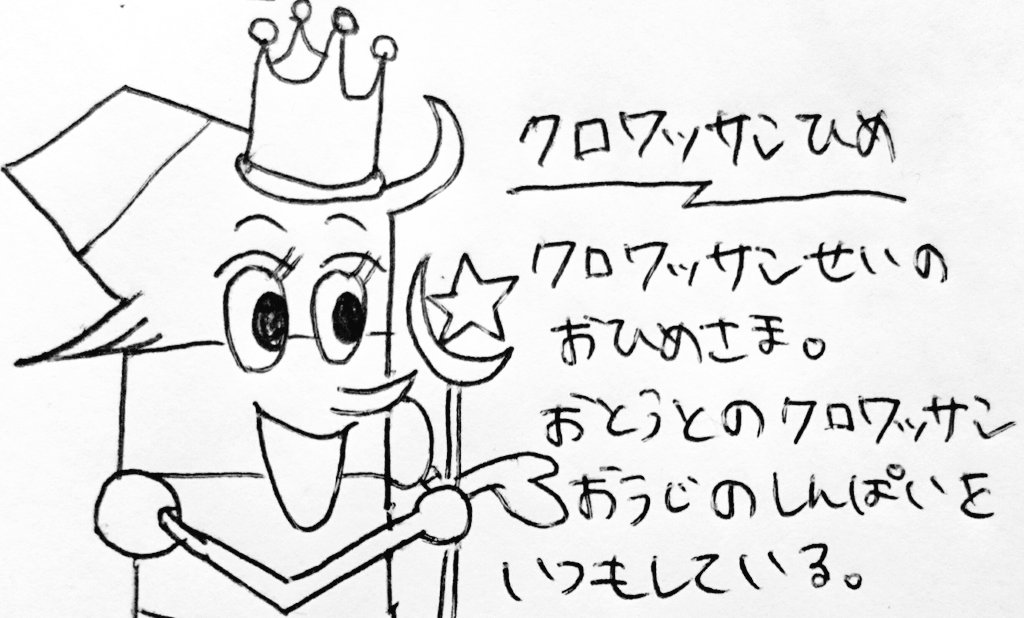 クロワッサンひめ
クロワッサンせいの
おひめさま。
おとうとのクロワッサン
おうじのしんぱいを
いつもしている。